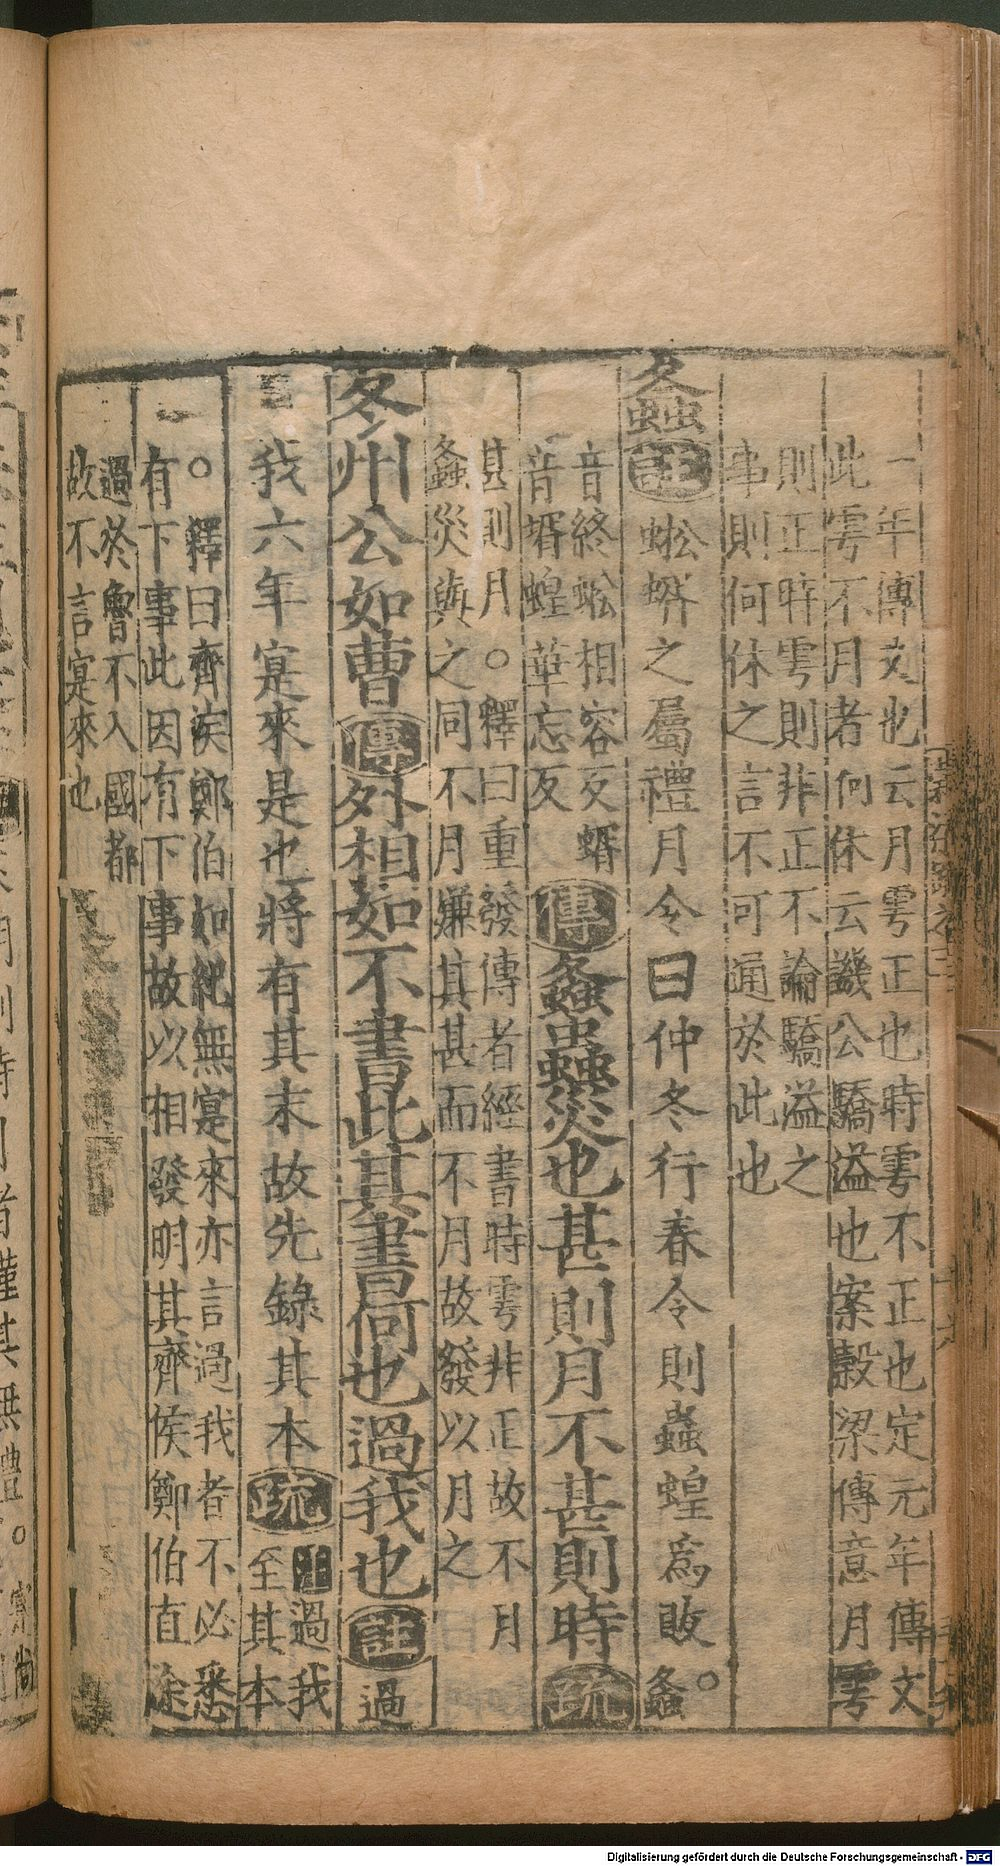 一年傳文也云月雩正也時雩不正也定元年傳文
此雩不月者何休云譏公驕溢也案穀梁傳意月雩
則正時雩則非正不論驕溢之
事則何休之言不可通於此也
螽註蜙蝑之屬禮月令曰仲冬行春令則蟲蝗爲敗。螽
音終蜙相容反蝑
音壻蝗華忘反
傳螽蟲災也甚則月不甚則時疏
甚則月。釋曰重發傳者經書時雩非正故不月
螽災與之同不月嫌其甚而不月故發以月之
冬州公如曹傳外相如不書此其書何也過我也註過
我六年寔來是也將有其末故先錄其本疏
註過我
至其本
。釋曰齊侯鄭伯如紀無寔來亦言過我者不必悉
有下事此因有下事故以相發明其齊侯鄭伯直塗
過於魯不入國都
故不言寔來也
Digitalisierung gefördert durch die Deutsche Forschungsgemeinschaft - DFG